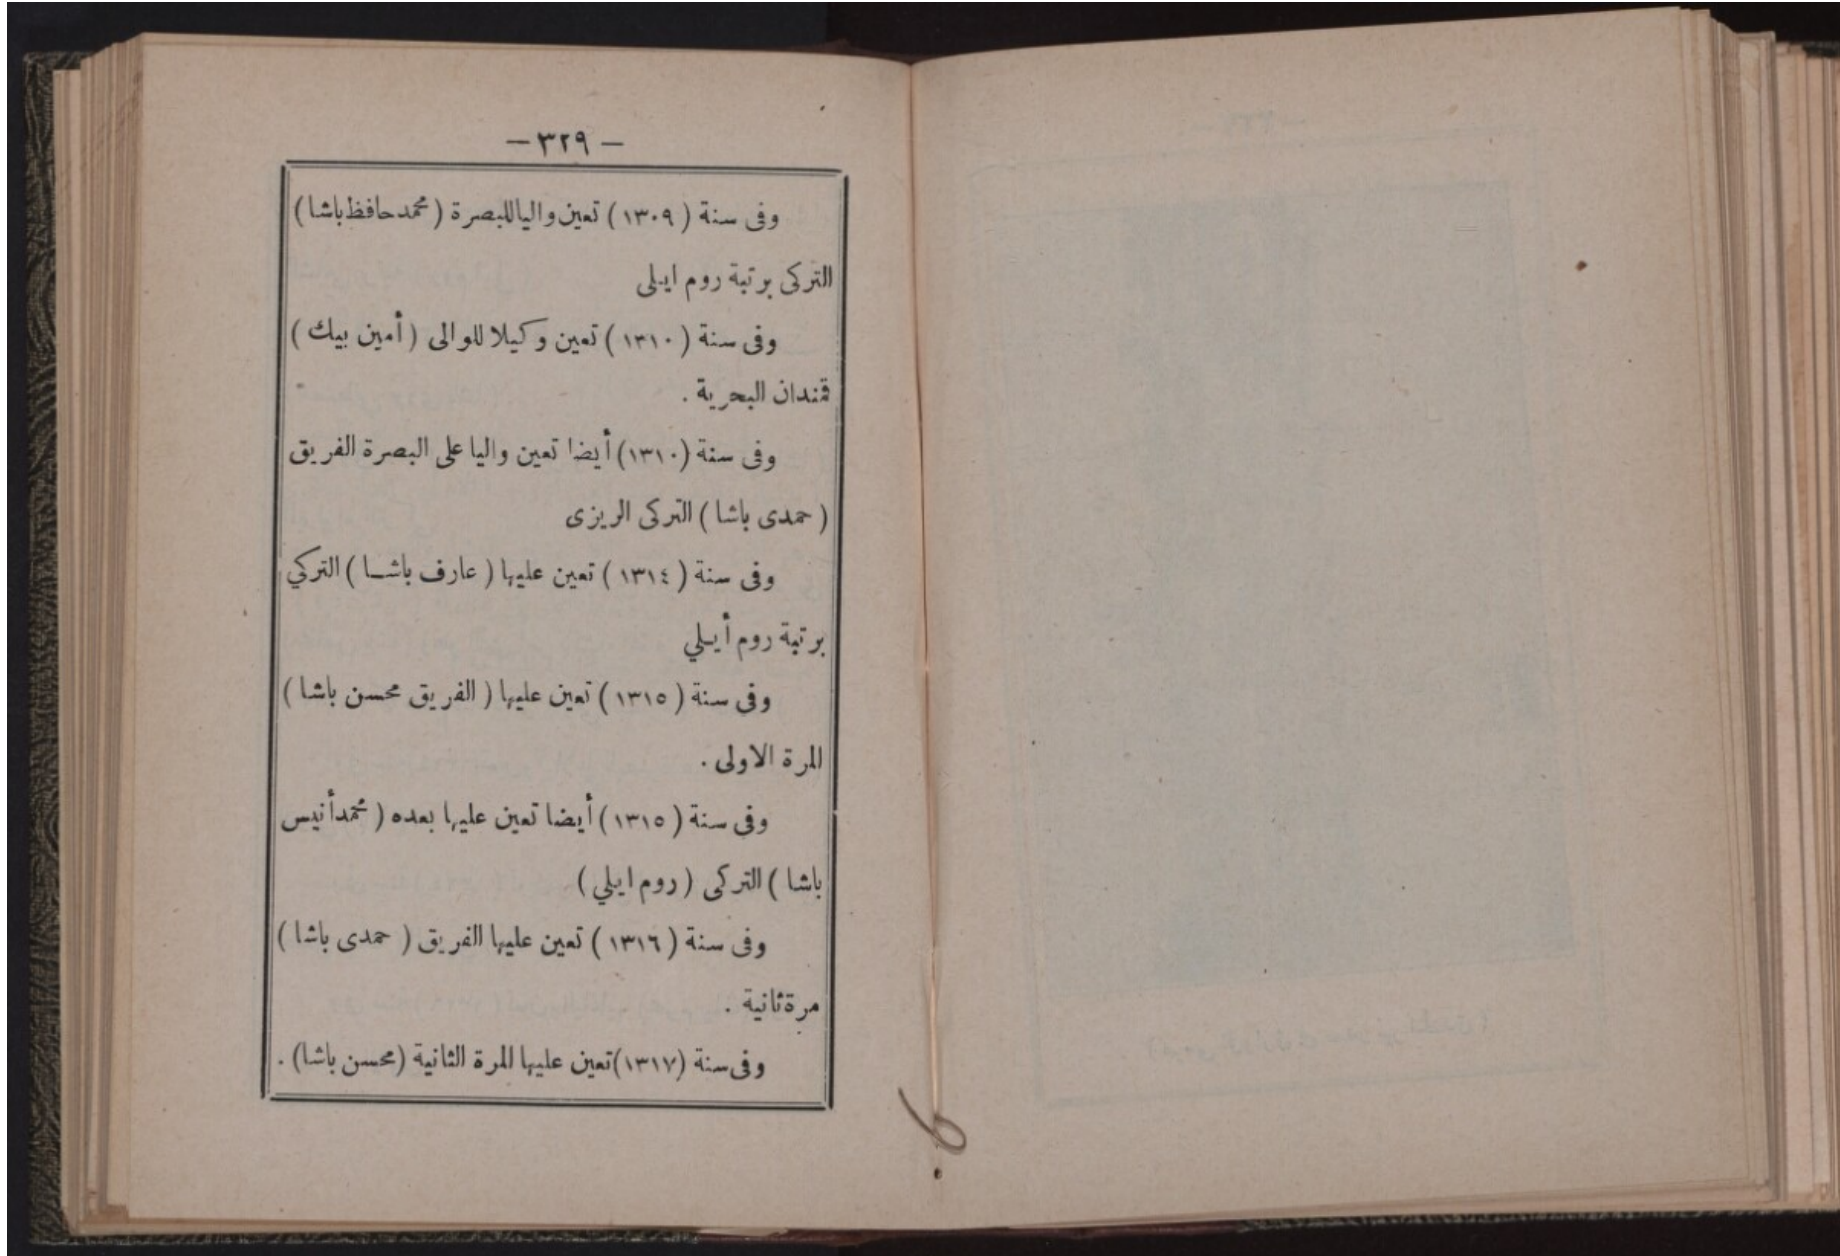 — ٣٢٩ —
وفى سنة ( ١٣٠٩ ) تعين واليا للبصرة ( محمد حافظ باشا )
التركى برتبة روم ايلى
وفى سنة ( ١٣١٠ ) تعين وكيلا للوالى ( أمين بيك )
قمندان البحرية .
وفى سنة ( ١٣١٠ ) أيضا تعين واليا على البصرة الفريق
( حمدى باشا ) التركى الريزى
وفى سنة ( ١٣١٤ ) تعين عليها ( عارف باشا ) التركي
برتبة روم أيلي
وفى سنة ( ١٣١٥ ) تعين عليها ( الفريق محسن باشا )
المرة الاولى .
وفى سنة ( ١٣١٥ ) أيضا تعين عليها بعده ( محمد أنيس
باشا ) التركى ( روم ايلي )
وفى سنة ( ١٣١٦ ) تعين عليها الفريق ( حمدى باشا )
مرة ثانية .
وفى سنة (١٣١٧) تعين عليها المرة الثانية (محسن باشا) .